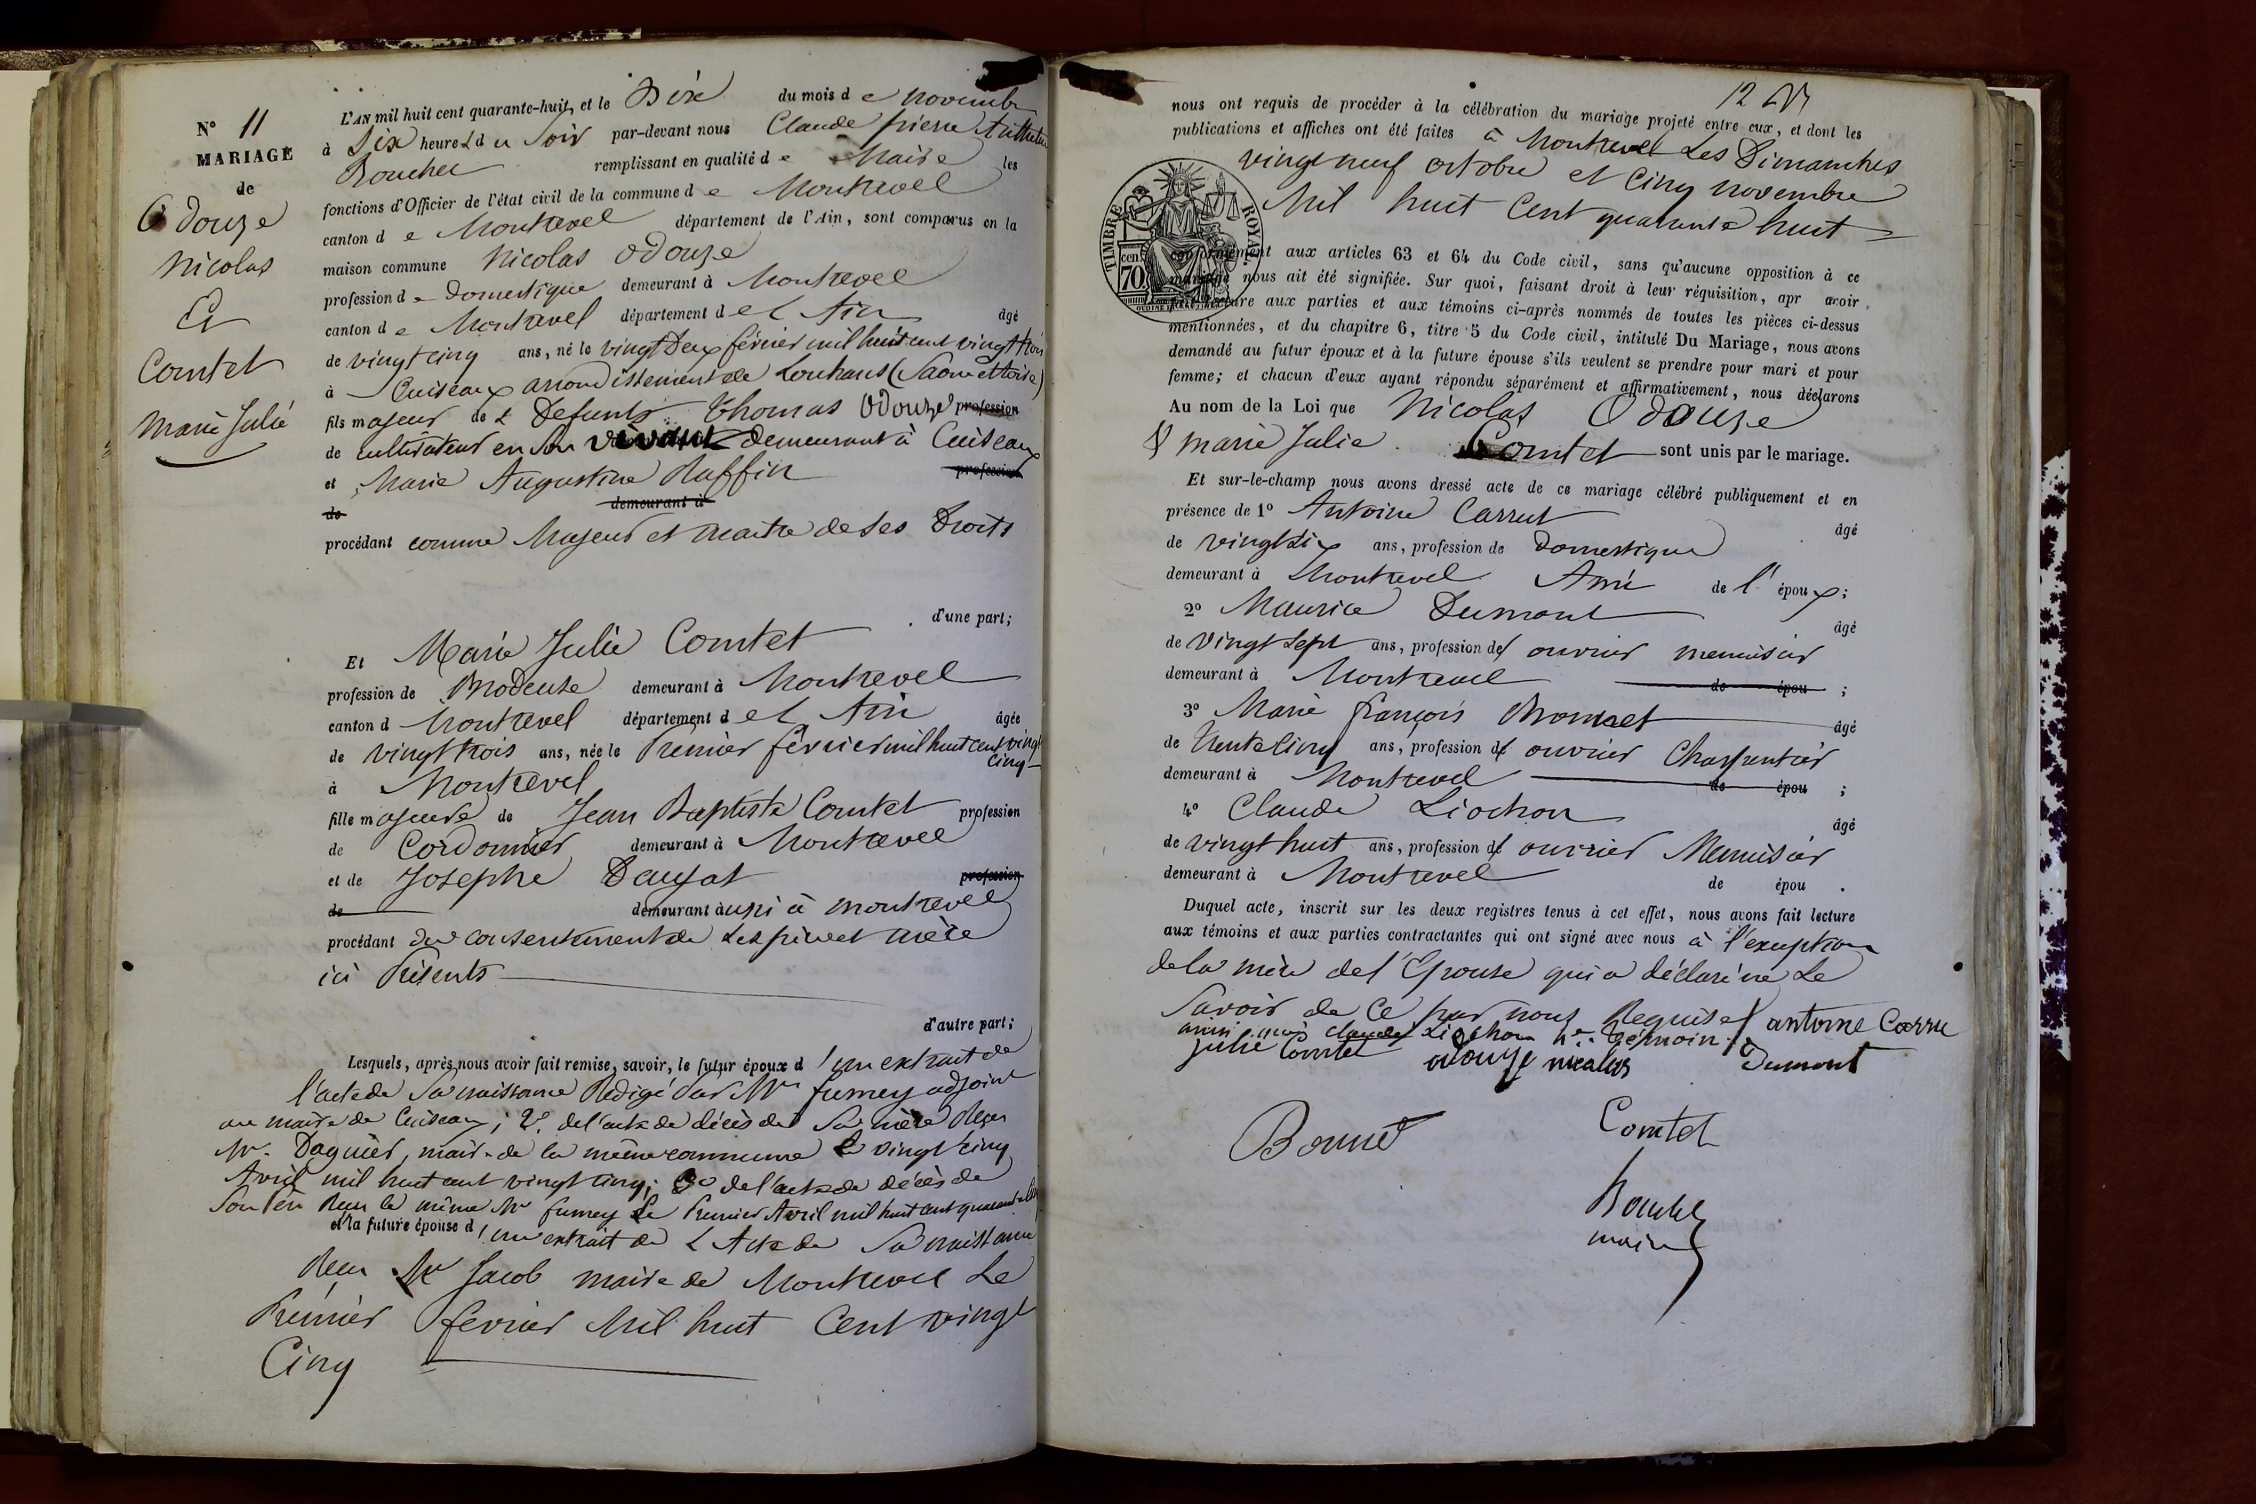 N° 11
MARIAGE
de
Odouze
Nicolas
Et
Comtet
Marie Julie
L'AN mil huit cent quarante-huit, et le Dix du mois de novembre
à Six heures du Soir par-devant nous Claude pierre
Bouchet remplissant en qualité de Maire les
fonctions d'Officier de l'état civil de la commune de Montrevel
canton de Montrevel département de l'Ain, sont comparus en la
maison commune Nicolas Odouze
profession de Domestique demeurant à Montrevel
canton de Montrevel département de l'Ain âgé
de vingt cinq ans, né le vingt Deux février mil huit cent vingt trois
à Cuiseaux arrondissement de Louhans (Saone et Loire)
fils majeur de Defunts Thomas Odouze profession
de cultivateur en son vivant demeurant à Cuiseaux
et Marie Augustine Ruffin profession
de demeurant à
procédant comme Majeur et maitre de ses Droits
d'une part;
Et Marie Julie Comtet
profession de Brodeuse demeurant à Montrevel
canton d Montrevel département de l'Ain âgée
de vingt trois ans, née le Premier février mil huit cent vingt
cinq
à Montrevel
fille majeure de Jean Baptiste Comtet profession
de Cordonnier demeurant à Montrevel
et de Josephe Daujat profession
de demeurant aussi à Montrevel
procédant du consentement de ses père et mère
ici Présents
d'autre part;
Lesquels, après nous avoir fait remise, savoir, le futur époux d'un extrait de
l'acte de Sa naissance Rédigé par Mr fumey adjoint
au maire de Cuiseaux; 2° de l'acte de décès de Sa mère Reçu
Mr. Daguier, maire de la même commune le vingt cinq
Avril mil huit cent vingt cinq; 3° de l'acte de décès de
Son père Reçu le même Mr fumey Le Premier Avril mil huit cent quarante
et la future épouse d'un extrait de L'Acte de Sa naissance
Reçu Mr Jacob maire de Montrevel Le
Premier février Mil huit Cent vingt
Cinq
12
nous ont requis de procéder à la célébration du mariage projeté entre eux, et dont les
publications et affiches ont été faites à Montrevel Les Dimanches
vingt neuf octobre et Cinq novembre
Mil huit Cent quarante huit
TIMBRE ROYAL.
70 cen
conformément aux articles 63 et 64 du Code civil, sans qu'aucune opposition à ce
mariage nous ait été signifiée. Sur quoi, faisant droit à leur réquisition, apr avoir
fait lecture aux parties et aux témoins ci-après nommés de toutes les pièces ci-dessus
mentionnées, et du chapitre 6, titre 5 du Code civil, intitulé Du Mariage, nous avons
demandé au futur époux et à la future épouse s'ils veulent se prendre pour mari et pour
femme; et chacun d'eux ayant répondu séparément et affirmativement, nous déclarons
Au nom de la Loi que Nicolas Odouze
& marie Julie Comtet sont unis par le mariage.
Et sur-le-champ nous avons dressé acte de ce mariage célébré publiquement et en
présence de 1° Antoine Carrut âgé
de vingt Six ans, profession de Domestique
demeurant à Montrevel Ami de l'époux;
2° Maurice Dumont âgé
de Vingt Sept ans, profession d ouvrier menuisier
demeurant à Montrevel de épou ;
3° Marie françois Bonnet âgé
de Trente Cinq ans, profession d ouvrier Charpentier
demeurant à Montrevel de épou ;
4° Claude Liochon âgé
de vingt huit ans, profession d ouvrier Menuisier
demeurant à Montrevel de épou .
Duquel acte, inscrit sur les deux registres tenus à cet effet, nous avons fait lecture
aux témoins et aux parties contractantes qui ont signé avec nous à l'exception
de la mère de l'Epouse qui a déclaré ne Le
Savoir de Ce par nous Requise
ainsi que claude Liochon 4e témoin. antoine Carru
julie Comtet odouze nicolas Dumont
Bonnet Comtet
Bouchet
maire